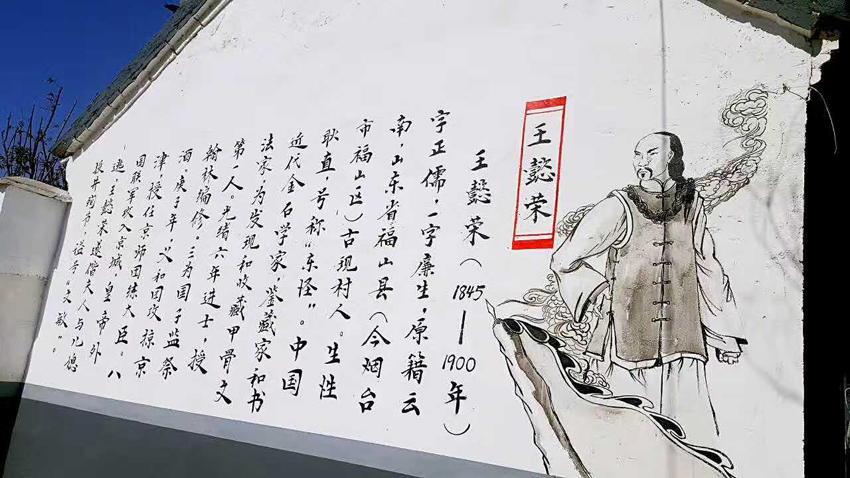 王懿荣
王懿荣(1845—1900年)
字正儒,一字廉生,原籍云
南,山东省福山县(今烟台
市福山区)古现村人。生性
耿直,号称“东怪”。中国
近代金石学家,鉴藏家和书
法家,为发现和收藏甲骨文
第一人。光绪六年进士,授
翰林编修。三为国子监祭
酒。庚子年,义和团攻掠京
津,授任京师团练大臣。八
国联军攻入京城,皇帝外
逃,王懿荣遂偕夫人与儿媳
投井殉节,谥号“文敏”。